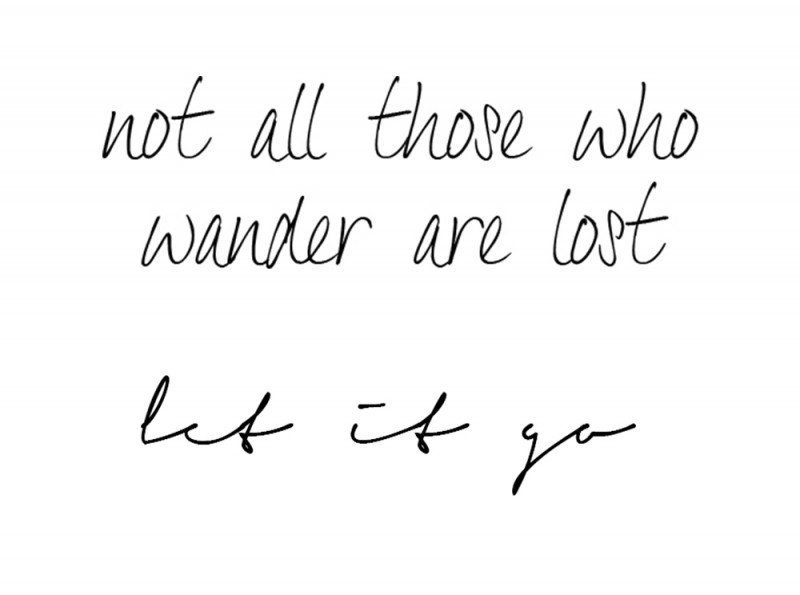 not all those who
wander are lost
let it go